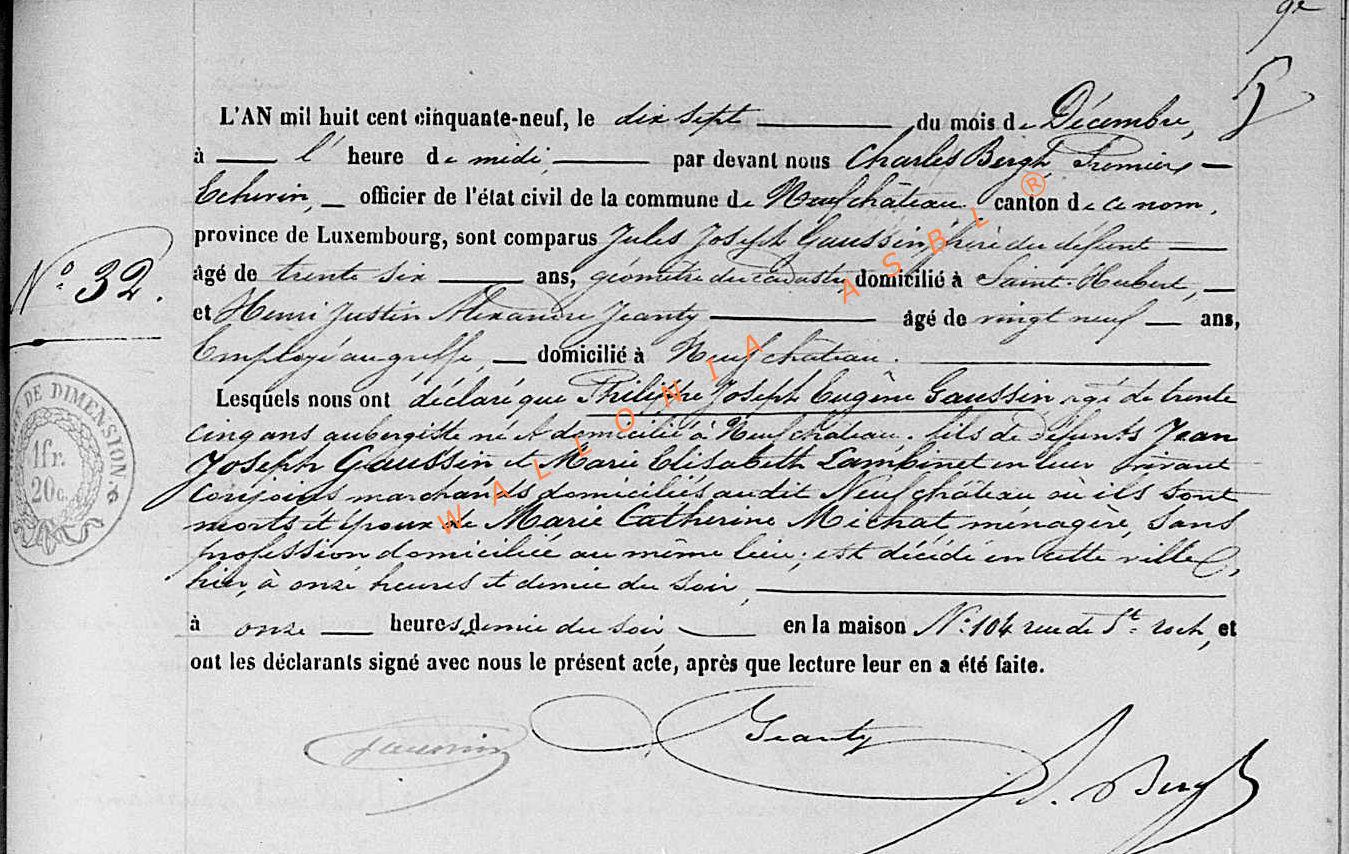 5
L'AN mil huit cent cinquante-neuf, le dix sept du mois de Décembre,
à l' heure de midi, par devant nous Charles Bergh, Premier
Echevin, officier de l'état civil de la commune de Neufchâteau, canton de ce nom,
province de Luxembourg, sont comparus Jules Joseph Gaussin, frère du défunt
âgé de trente six ans, géomètre du cadastre, domicilié à Saint-Hubert,
et Henri Justin Alexandre Jeanty âgé de vingt neuf ans,
Employé au greffe, domicilié à Neufchâteau.
Lesquels nous ont déclaré que Philippe Joseph Eugène Gaussin agé de trente
cinq ans aubergiste né et domicilié à Neufchateau, fils de défunts Jean
Joseph Gaussin et Marie Elisabeth Lambinet en leur vivant
conjoints marchands domiciliés audit Neufchâteau où ils sont
morts et époux de Marie Catherine Michat ménagère, sans
profession domiciliée au même lieu; est décédé en cette ville,
hier, à onze heures et demie du soir,
à onze heures demie du soir, en la maison N° 104 rue de St. roch, et
ont les déclarants signé avec nous le présent acte, après que lecture leur en a été faite.
N° 32.
DE DIMENSION
1fr.
20c.
Gaussin
Jeanty
Bergh
WALLONIA ASBL ®